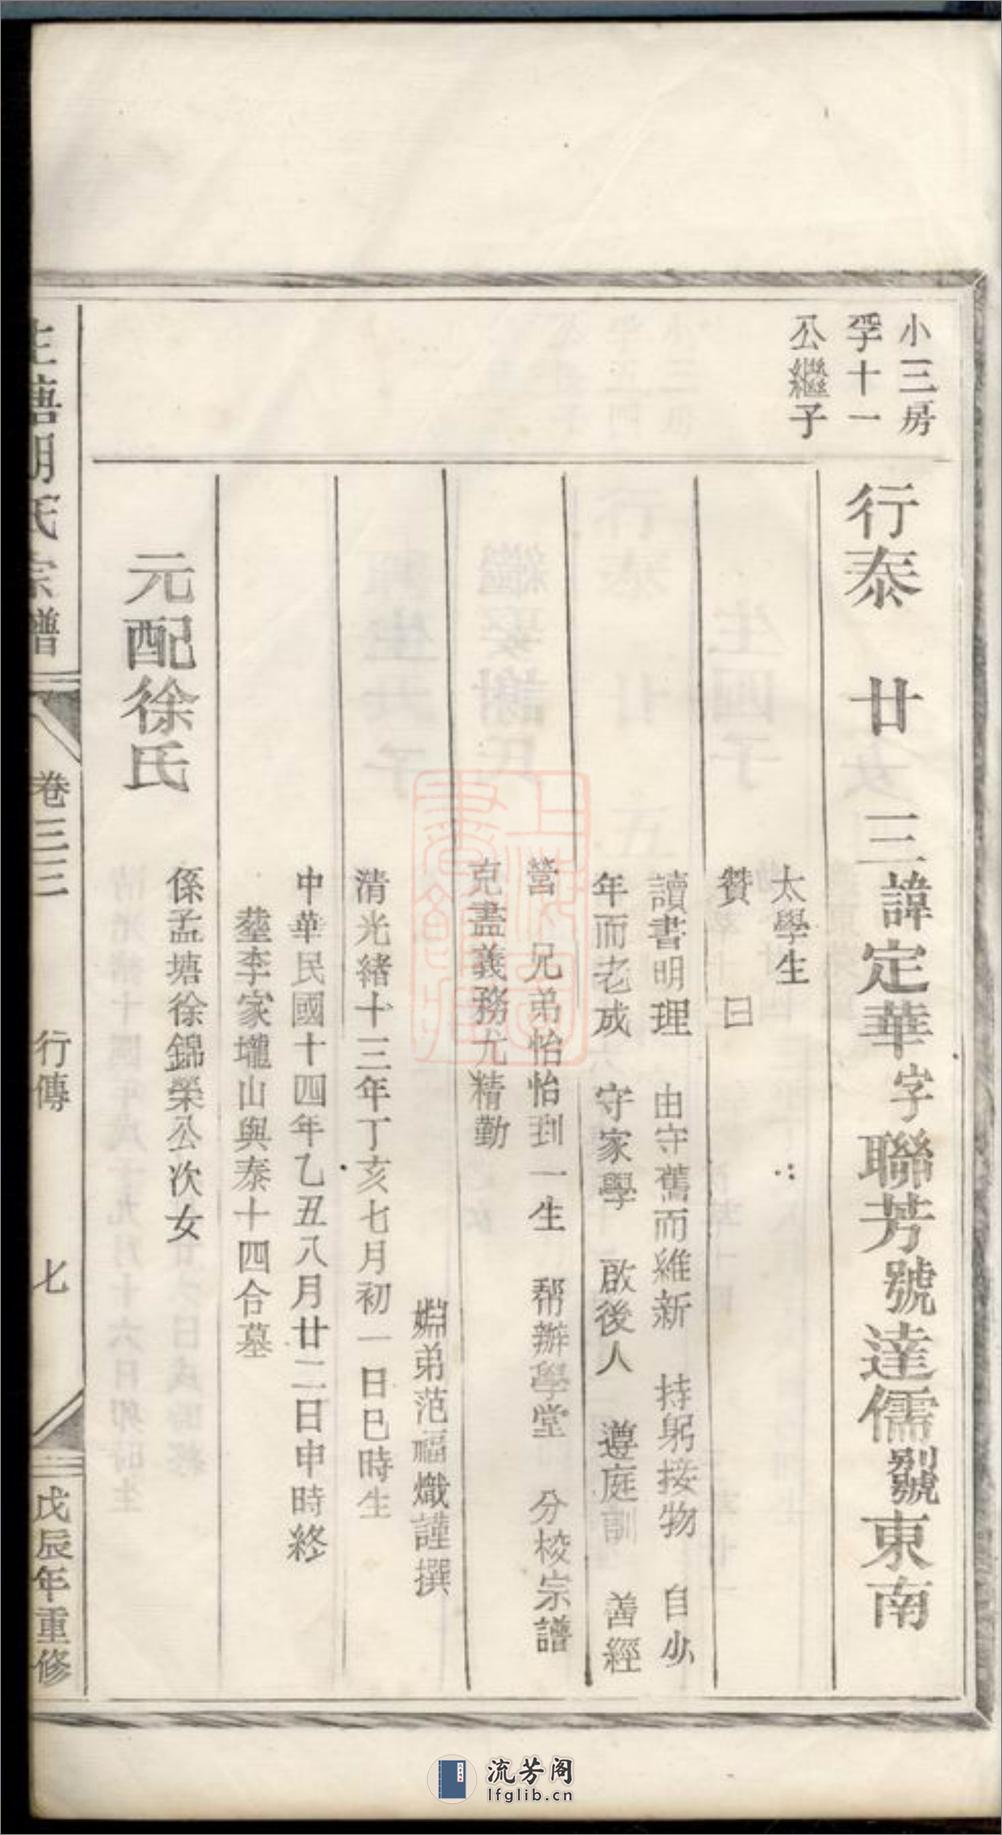 小三房
孚十一
公繼子
行泰 廿 三諱定華字聯芳號達儒別號東南
太學生
贊 曰
讀書明理 由守舊而維新 持躬接物 自少
年而老成 守家學 啟後人 遵庭訓 善經
營 兄弟怡怡到一生 幇辦學堂 分校宗譜
克盡義務尤精勤
姻弟范福熾謹撰
清光緒十三年丁亥七月初一日巳時生
中華民國十四年乙丑八月廿二日申時終
塟李家壠山與泰十四合墓
元配徐氏
係孟塘徐錦榮公次女
塘胡氏宗譜
卷三三
行傳
七
戊辰年重修
流芳阁
lfglib.cn